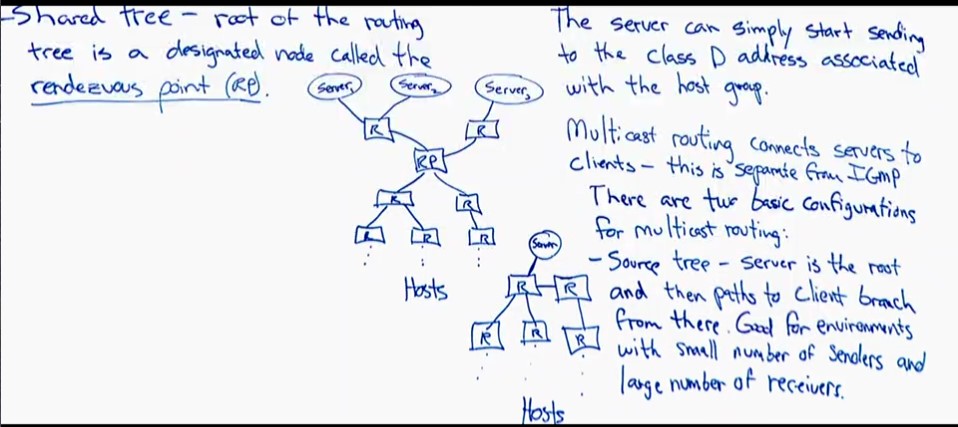 -Shared tree - root of the routing
tree is a designated node called the
rendezvous point (RP).
Server1
Server2
Server3
R
R
RP
R
R
R
R
R
Hosts
The server can simply start sending
to the class D address associated
with the host group.
Multicast routing connects servers to
clients - this is separate from IGMP
There are two basic configurations
for multicast routing:
- Source tree - server is the root
and then paths to client branch
from there. Good for environments
with small number of senders and
large number of receivers.
Server
R
R
R
R
R
Hosts